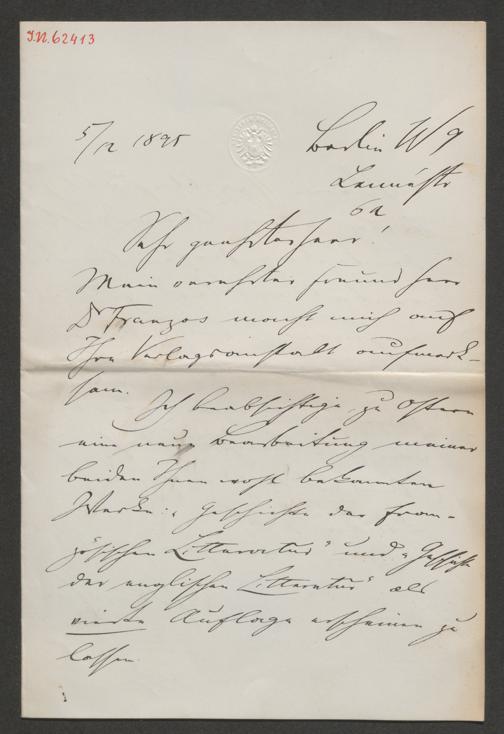 J.N. 62413
5/12 1895
Berlin W 9
Lennéstr
6a
Sehr geehrter Herr!
Mein verehrter Freund Herr
Dr Franzos macht mich auf
Ihre Verlagsanstalt aufmerk-
sam.
Ich beabsichtige, zu Ostern
eine neue Bearbeitung meiner
beiden Ihnen wohl bekannten
Werke: „Geschichte der fran-
zösischen Litteratur" und „Geschichte
der englischen Litteratur" als
vierte Auflage erscheinen zu
lassen.